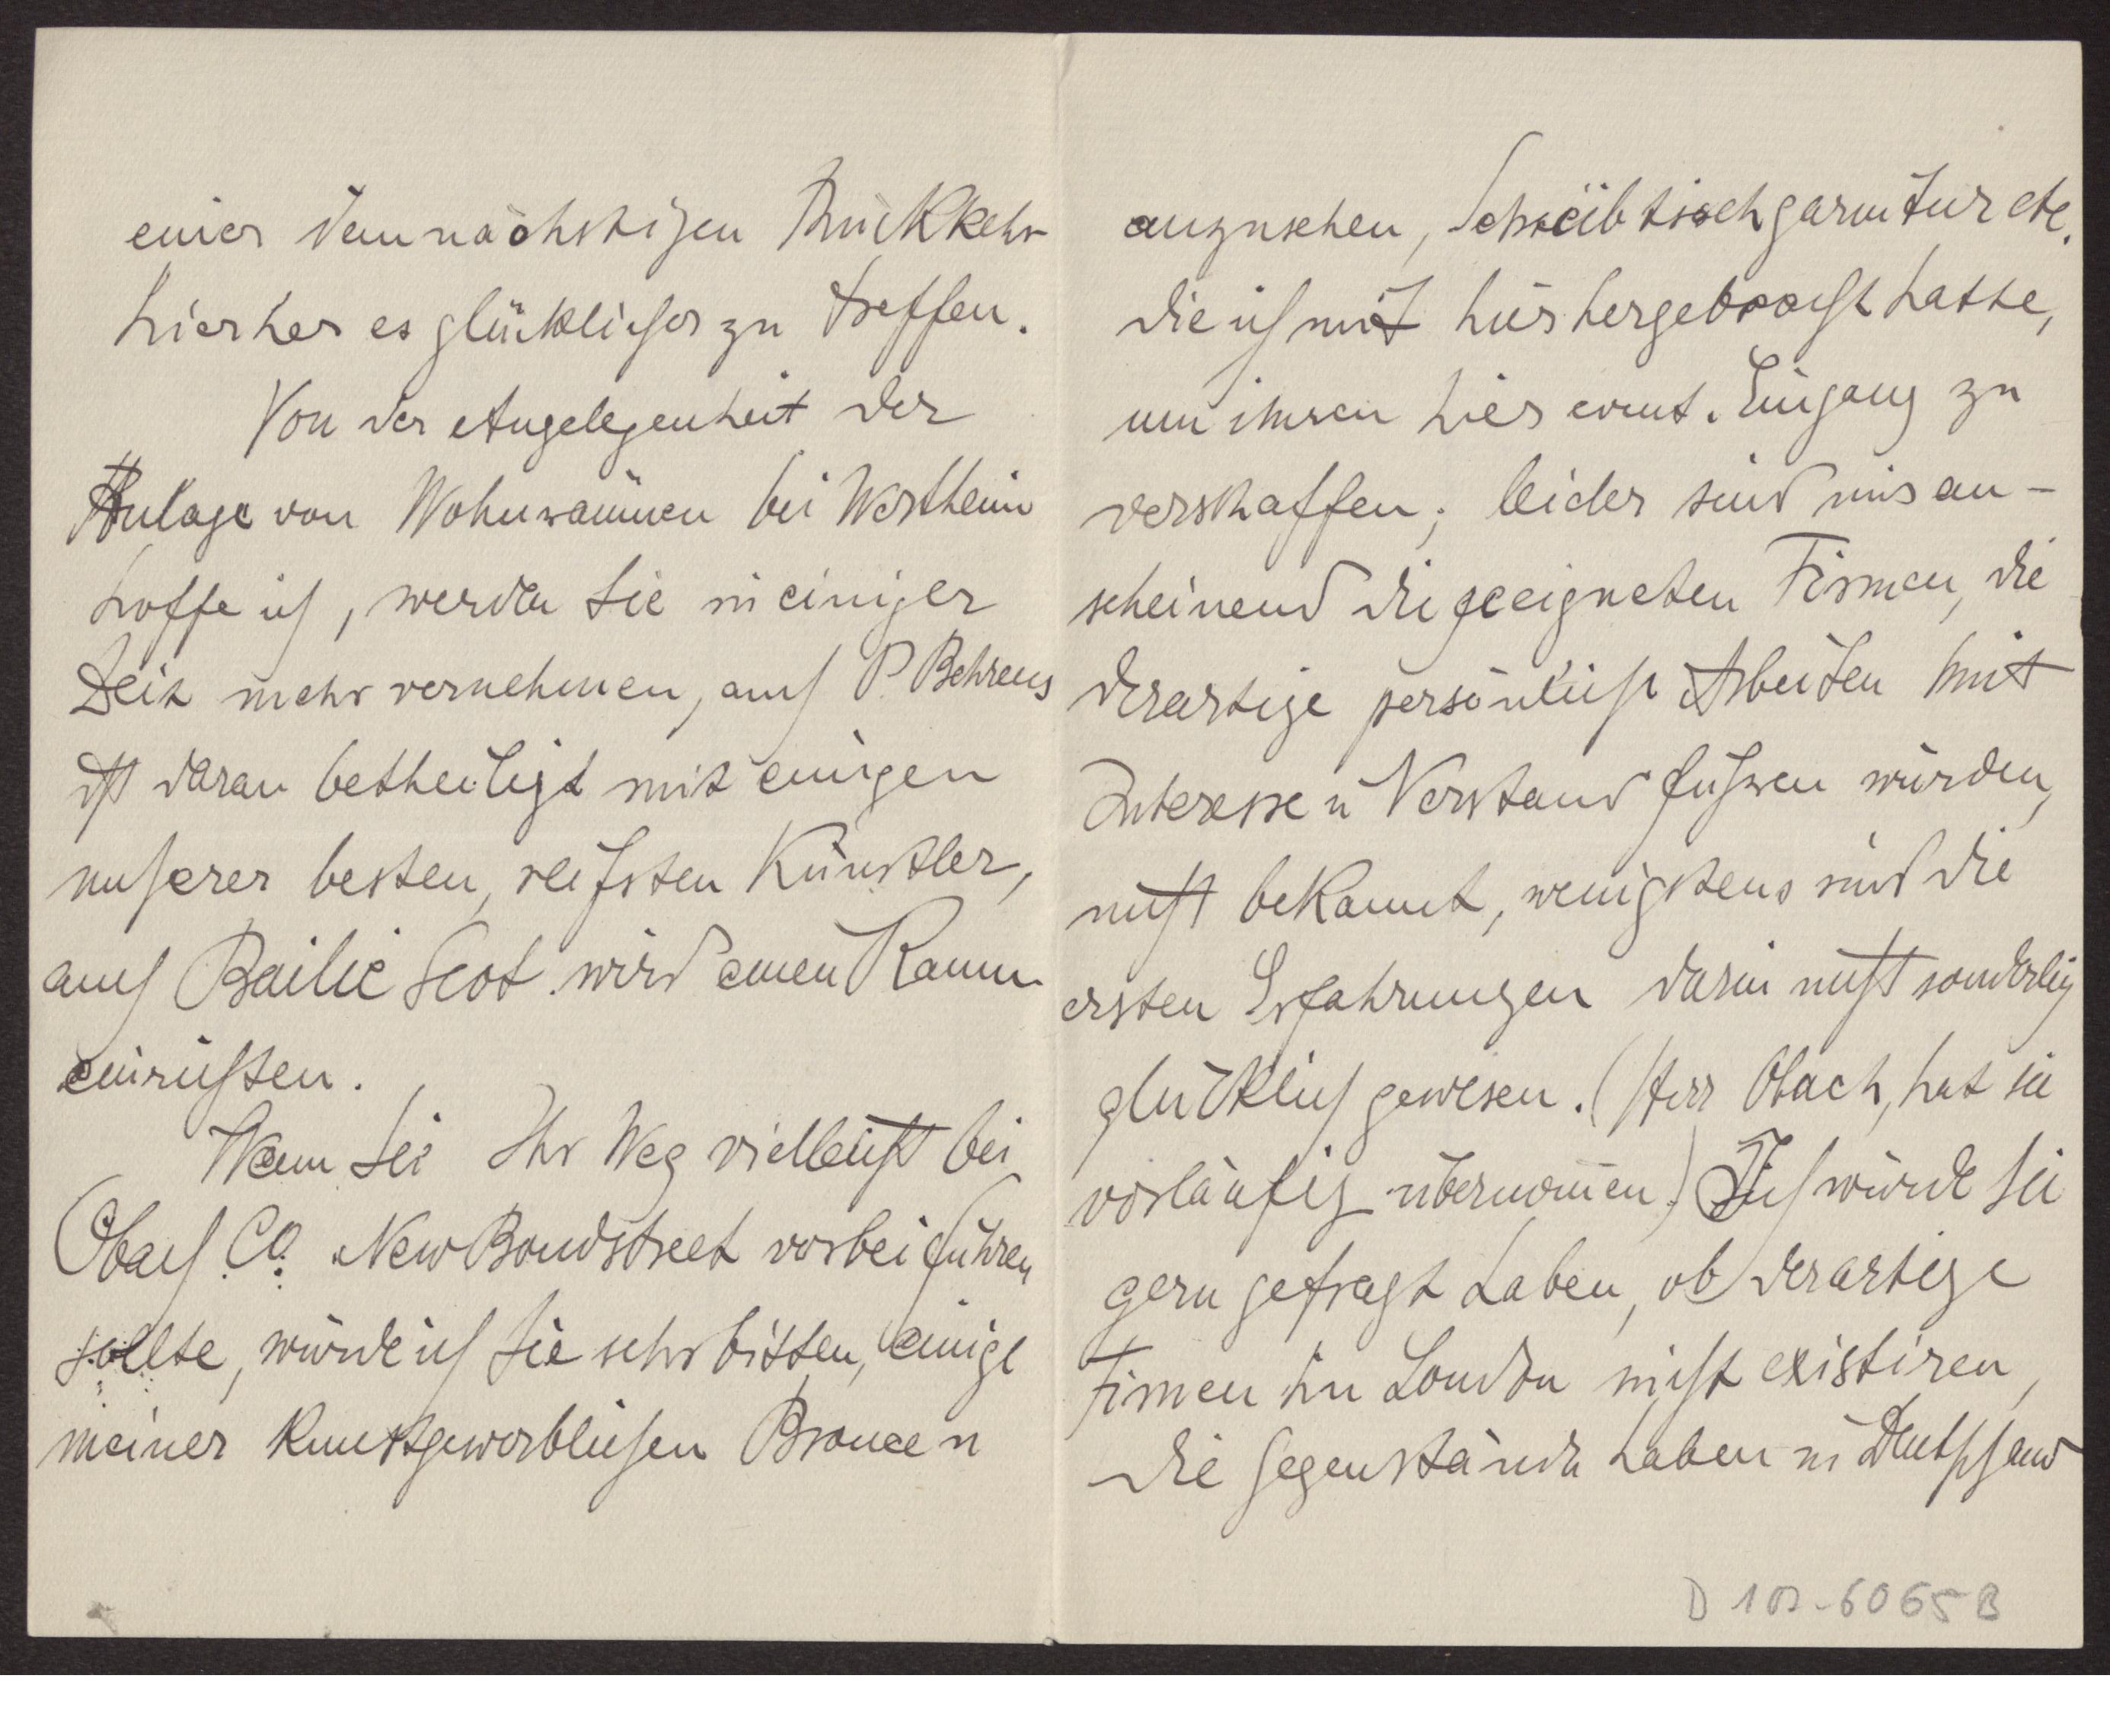 einer demnächstigen Rückkehr
hierher es glücklicher zu treffen.
Von der Angelegenheit der
Anlage von Wohnräumen bei Wertheim
hoffe ich, werden Sie in einiger
Zeit mehr vernehmen, auch P. Behrens
ist daran betheiligt mit einigen
unserer besten, reifsten Künstler,
auch Bailie Scot wird einen Raum
einrichten.
Wenn Sie Ihr Weg vielleicht bei
Obach Co. New Bondstreet vorbei führen
sollte, würde ich Sie sehr bitten, einige
meiner kunstgewerblichen Broncen
anzusehen, Schreibtischgarnitur etc.
die ich mit hierhergebracht hatte,
um ihnen hier event. Eingang zu
verschaffen; leider sind mir an-
scheinend die geeigneten Firmen, die
derartige persönliche Arbeiten mit
Interesse u Verstand führen würden,
nicht bekannt, wenigstens sind die
ersten Erfahrungen darin nicht sonderlich
glücklich gewesen. (Herr Obach, hat sie
vorläufig übernomen) Ich würde Sie
gern gefragt haben, ob derartige
Firmen in London nicht existiren,
die Gegenstände haben in Deutschland
D 102-6065 B